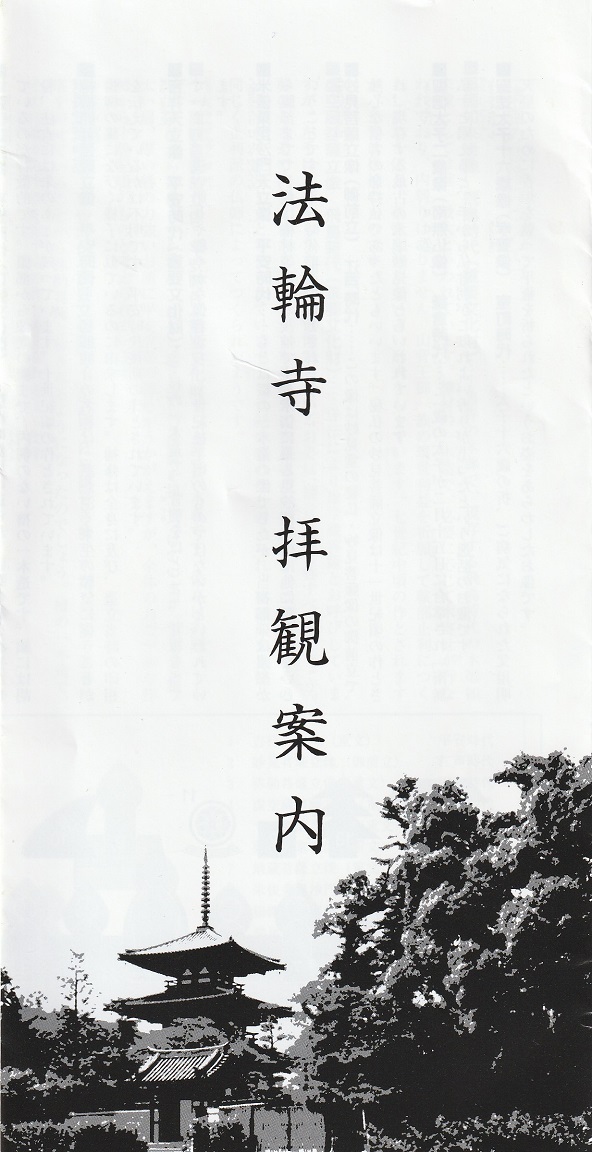 法輪寺 拝観案内